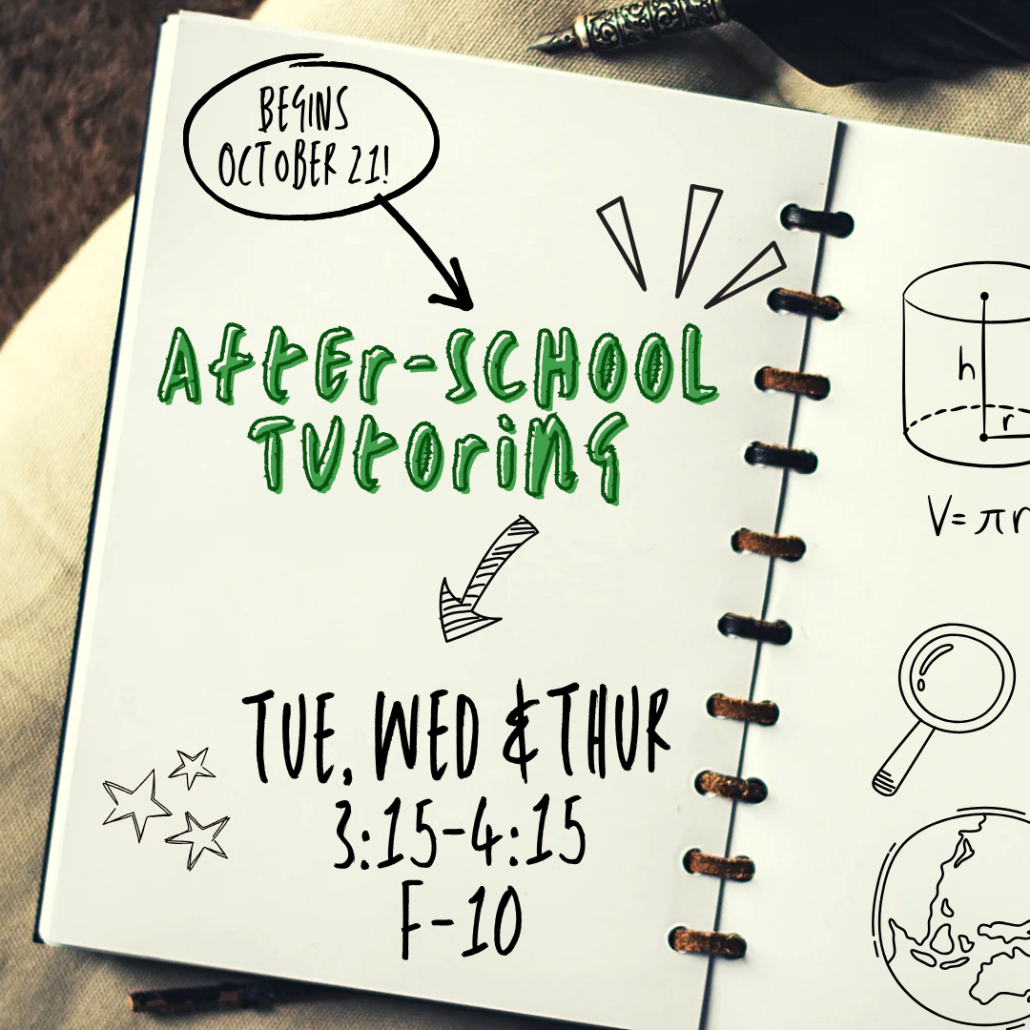 BEGINS
OCTOBER 21!
AFtEr-SCHOOL
TUtOriNG
TUE, WED & THUR
3:15-4:15
F-10
h
r
V= πr